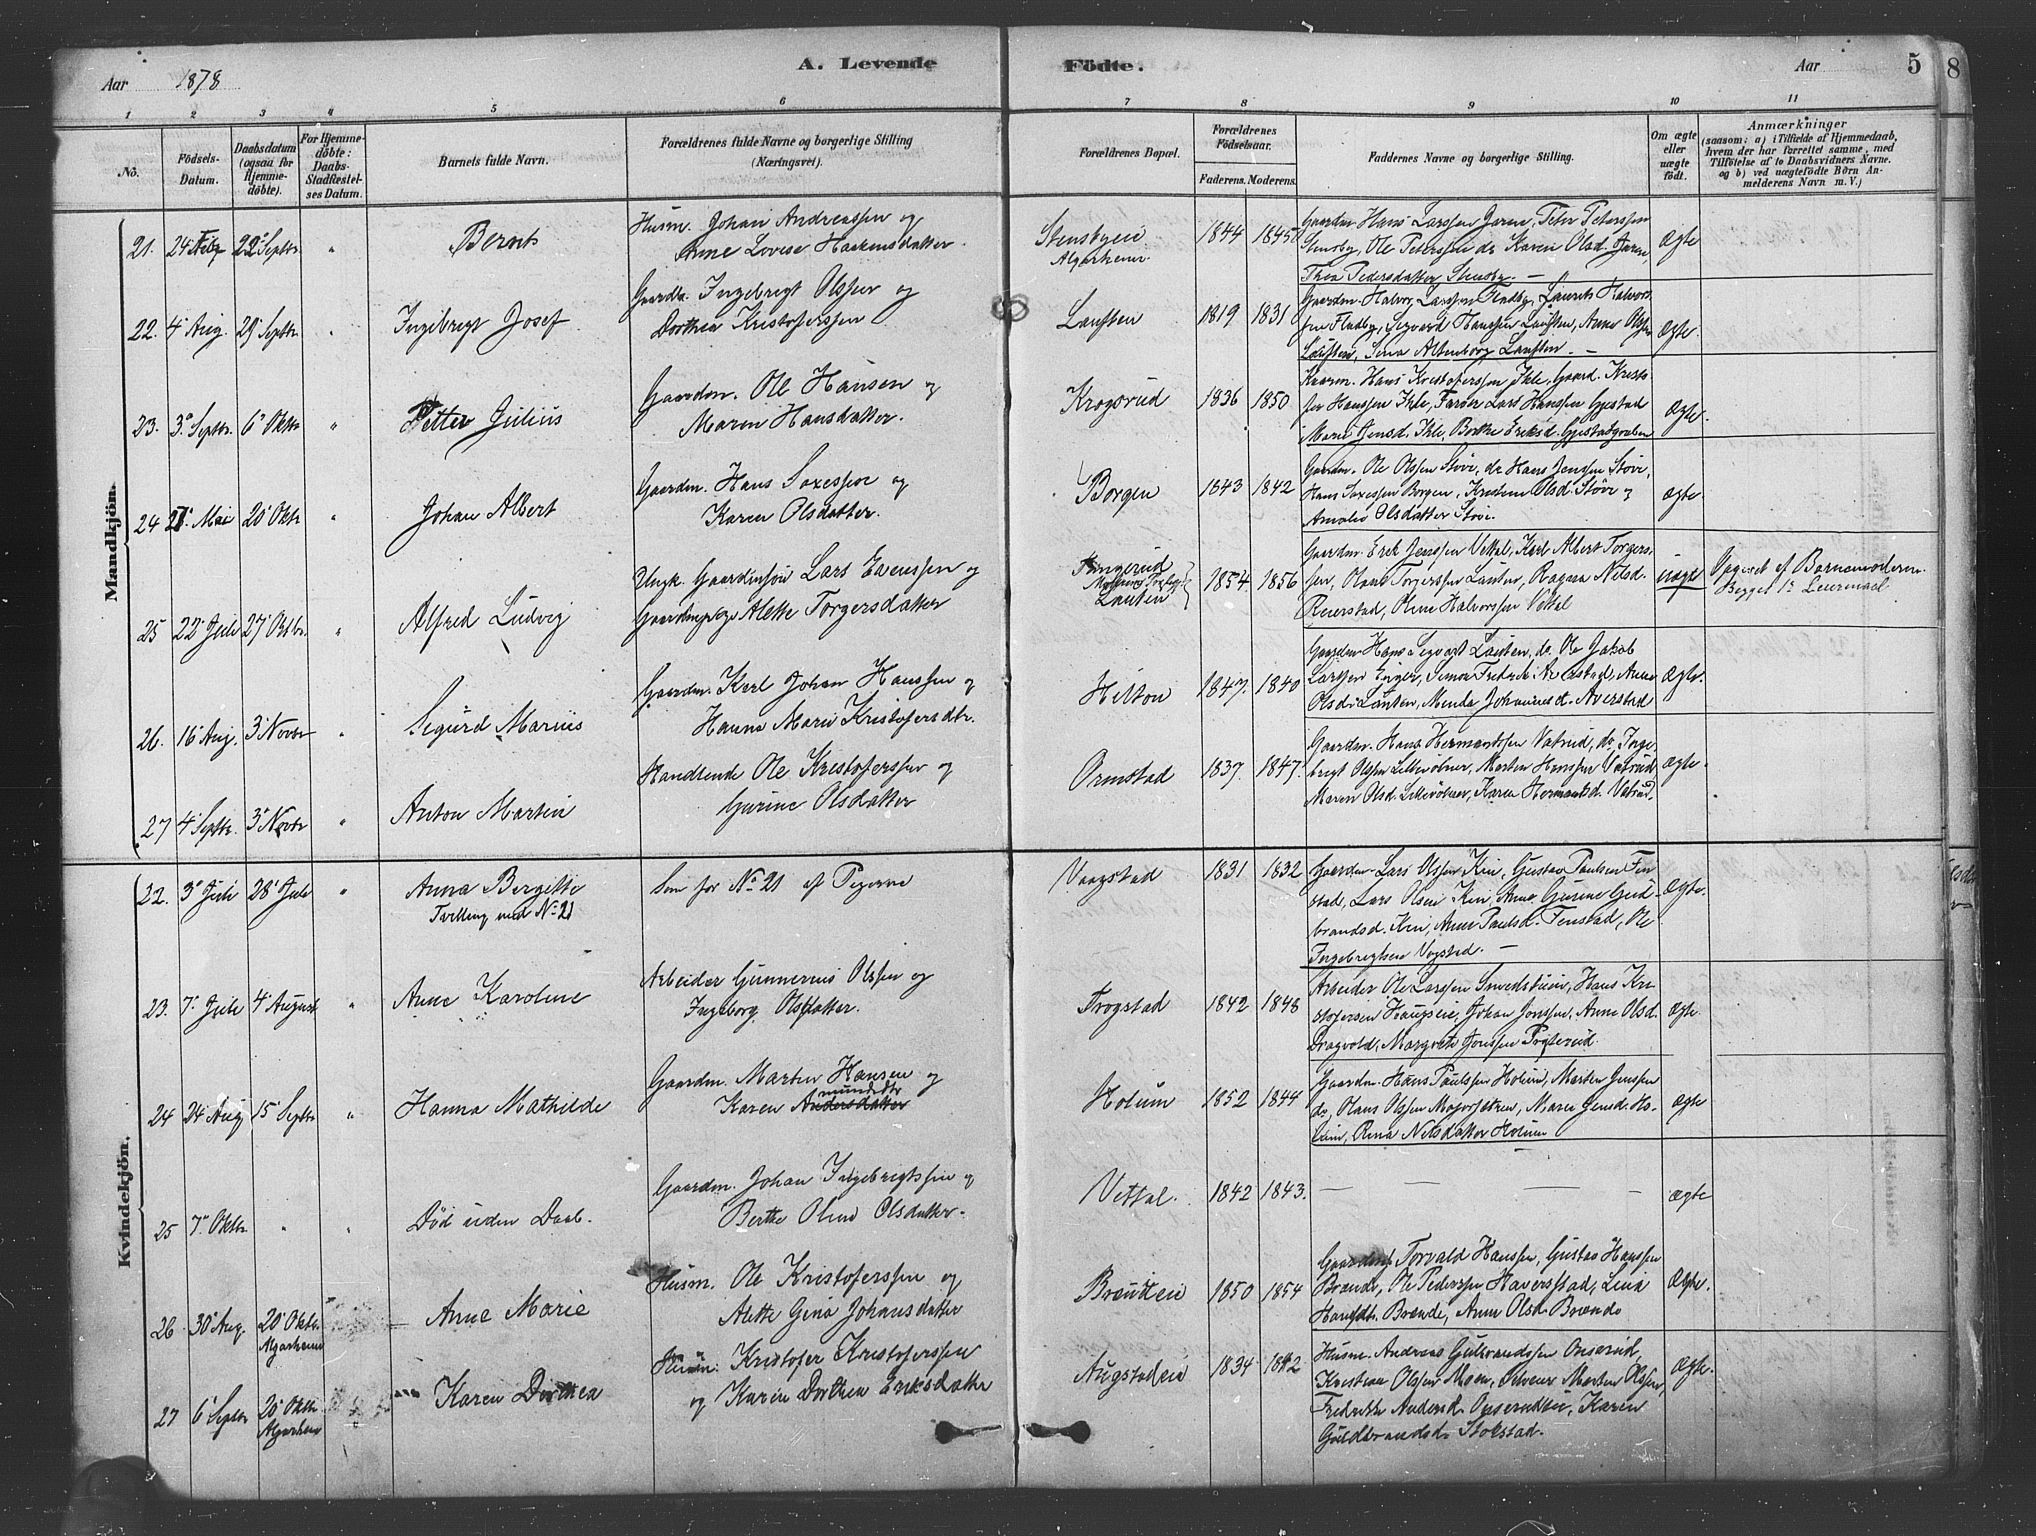 Aar 1878
A. Levende Födte.
Aar
5
8
1 2 3 4 5 6 7 8 9 10 11
No.
Födsels-Datum.
Daabsdatum (ogsaa for Hjemmedöbte).
For Hjemmedöbte: Daabs-Stadfæstelses Datum.
Barnets fulde Navn.
Forældrenes fulde Navne og borgerlige Stilling (Næringsvei).
Forældrenes Bopæl.
Forældrenes Födselsaar.
Faderens. Moderens.
Faddernes Navne og borgerlige Stilling.
Om ægte eller uægte födt.
Anmærkninger
(saasom: a) i Tilfælde af Hjemmedaab, hvem der har forrettet samme, med Tilföielse af to Daabsvidners Navne. og b) ved uægtefödte Börn Anmelderens Navn m. V.)
Mandkjön.
21. 24 22 Septbr. " Bernt
Husm. Johan Andreassen og
Anne Lovise Haakensdatter.
Stensbyeie
Algarheim.
1844 1845
Gaardm. Hans Larssen Jaren, Peter Peterssen
Stensby, Ole Peterssen do Karen Olsd. Jaren,
Thea Pedersdatter Stensby. —
Ægte
22. 4 Aug. 29 Septbr. " Ingebrigt Josef
Gaardbr. Ingebrigt Olssen og
Dorthea Kristoferssen
Lausten
1819 1831
Gaardm. Halvor Larssen Fladby, Laurits Halvors-
sen Fladby, Segvard Hanssen Lausten, Anne Olssen
Lausten, Sina Altenborg Lausten. —
Ægte.
23. 3 Septbr. 6 Oktbr " Petter Julius
Gaardm. Ole Hansen og
Maren Hansdatter.
Krogsrud
1836 1850
Gaardm. Hans Kristoferssen Ihle, Gaard. Kristo-
fer Hanssen Ihle, Farver Lars Hanssen Gjestad
Marie Jensd. Ihle, Berthe Eriksd. Gjestadgraben
Ægte.
24 21 Mai 20 Oktr " Johan Albert
Gaardm. Hans Saxessen og
Karen Olsdatter.
Borgen
1843 1842
Gaardm. Ole Olssen Støve, do Hans Jenssen Støve,
Hans Saxessen Borgen, Kristine Olsd. Støve og
Amalie Olsdatter Støve.
Ægte
25 22 Juli 27 Oktbr. " Alfred Ludvig
Ungk. Gaardmsøn Lars Evenssen og
Gaardmpige Alette Torgersdatter
Lauten
1854 1856
Gaardm. Erik Jenssen Vettal, Karl Albert Torgers-
sen, Olaus Torgerssen Lauten, Ragna Nilsd.
Reierstad, Oline Halvorssen Vettal
uægte
Opgivet af Barnemoderen.
Begges 1ste Leiermaal
26. 16 Aug. 3 Novbr " Sigurd Marius
Gaardm. Karl Johan Hanssen og
Hanna Marie Kristofersdtr.
Helton
1847. 1840
Gaardm Hans Segvart Lauten, do. Ole Jakob
Larssen Enger, Simon Frederik Averstad, Anne
Olsd. Lauten, Menda Johannesd. Averstad
Ægte.
27 4 Septbr. 3 Novbr " Anton Martin
Handlende Ole Kristoferssen og
Gurine Olsdatter
Ormstad
1837. 1847.
Gaardm. Hans Hermandssen Vatrud, do. Inge-
brigt Olssen Lillevølner, Marten Hanssen Vatrud
Maren Olsd. Lillevølner, Karen Hermansd. Vatrud.
Ægte.
Kvindekjön.
22. 3 Juli 28 Juli " Anna Bergitte
Tvilling med No 21
Som for No 21 af Pigerne
Vaagstad
1831 1832
Gaardm. Lars Olssen Kin, Gustav Paulsen Fen-
stad, Lars Olsen Kin, Anne Gurine Gud-
brandsd. Kin, Anne Paulsd. Fenstad, Ole
Ingebrigtsen Vogstad. —
Ægte.
23. 7 Juli 4 August " Anne Karoline
Arbeider Gunnerius Olssen og
Ingeborg Olsdatter.
Trogstad
1842 1848
Arbeider Ole Larssen Smedstuen, Hans Kri-
stofersen Haugseie, Johan Jonssen, Anne Olsd.
Dragvold, Margrete Jonssen
Ægte.
24 24 Aug 15 Septbr " Hanna Mathilde
Gaardm. Marten Hansen og
Karen Andersdatter mundsdtr
Holum
1852 1844
Gaardm. Hans Paulssen Holum, Marten Jenssen
do, Olaus Olssen Majorsetren, Maren Jensd. Ho-
lum, Rena Nilsdatter Holum
Ægte
25 7 Oktbr. " " Død uden Daab.
Gaardm. Johan Ingebrigtssen og
Berthe Oline Olsdatter.
Vettal.
1842 1843.
— — — —
ægte
26 30 Aug. 20 Oktbr. Algarheim Anne Marie
Husm. Ole Kristoferssen og
Alette Gina Johansdatter
Brændeie
1850 1854
Gaardm Torvald Hanssen, Gustav Hanssen
Brænde, Ole Pederssen Haverstad, Lina
Hansdtr. Brænde, Anne Olsd. Brænde
Ægte.
27 6 Septbr 20 Oktbr Algarheim Karen Dorthea
Husm. Kristofer Kristoferssen
og Karen Dorthea Eriksdatter
Augstadeie
1834 1842
Husm. Andreas Gulbrandssen Onserud,
Kristian Olssen Moen, Marten Olssen,
Fredrikke Andersd. Onserudeie, Karen
Guldbrandsd. Stokstad.
Ægte.